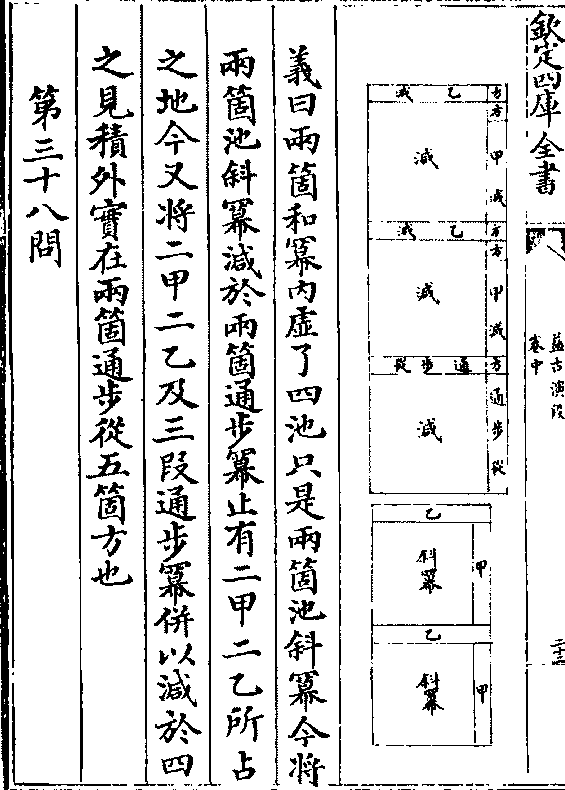 欽定四庫全書
益古演段
卷中
二十三
方 甲 減
方
乙 減
減
方 甲 減
方
乙 減
減
方 通 步 從
通 步 從
減
乙
甲
斜冪
乙
甲
斜冪
義曰兩箇和冪内虚了四池只是兩箇池斜冪今將
兩箇池斜冪減於兩箇通步冪止有二甲二乙所占
之地今又將二甲二乙及三段通步冪併以減於四
之見積外實在兩箇通步從五箇方也
第三十八問